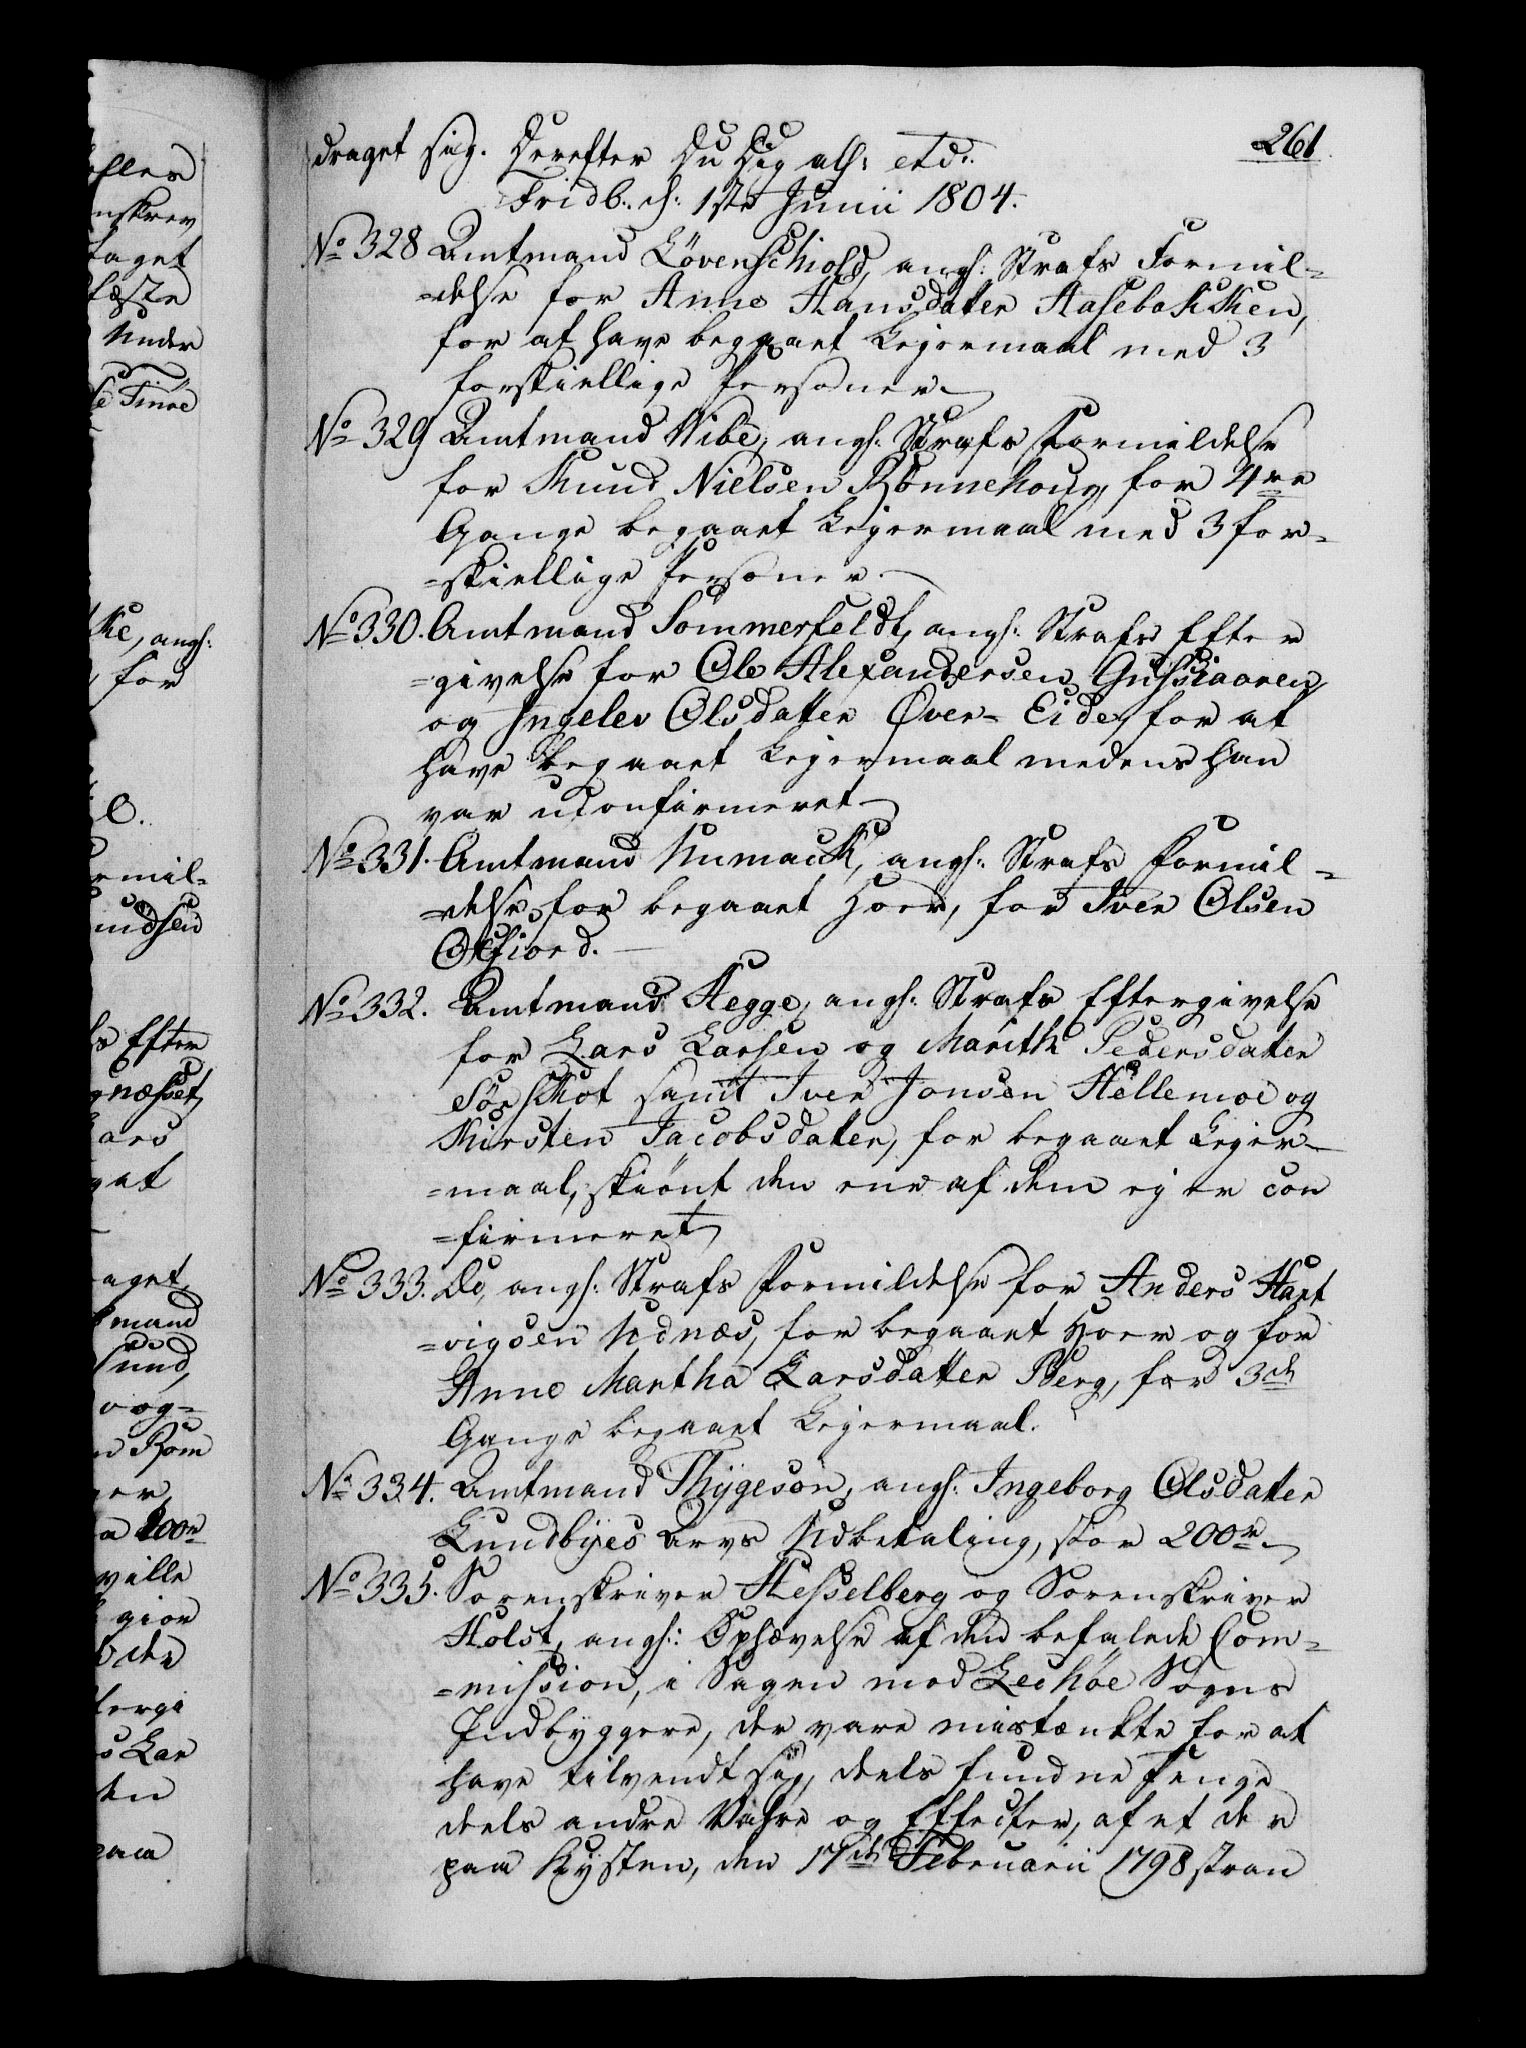 261
draget sig. Derefter Du Dig alf: etc:
Fridb: d: 1ste Junii 1804.
No 328 Amtmand Lövenschiold, angl: Strafs Formil=
=delse for Anne Hansdatter Haseba
for at have begaaet Leiermaal med 3
forskiellige Personer.
No 329 Amtmand Wibe, angl: Strafs Formildelse
for Knud Nielsen Rönnehoug, for 4re
Gange begaaet Leiermaal med 3 for=
=skiellige Personer.
No 330. Amtmand Sommerfeldt, angl: Strafs Efter
=givelse for Ole Alexandersen
og Ingelev Olsdatter Øver-Eide, for at
have begaaet Leiermaal medens han
var uconfirmeret
No 331. Amtmand Kumack, angl: Strafs Formil=
=delse for begaaet Hoer, for Iver Olsen
Oxfiord.
No 332. Amtmand Hegge, angl: Strafs Eftergivelse
for Lars Larsen og Marith Pedersdatter
Sörskot samt Iver Jonsen Hellemoe og
Kirsten Jacobsdatter, for begaaet Leier=
=maal, skiönt den ene af dem ej er con
=firmeret
No 333. Do, angl: Strafs Formildelse for Anders Hart
=vigsen Udnæs, for begaaet Hoer og for
Anne Martha Larsdatter Berg, for 3de
Gange begaaet Leiermaal.
No 334. Amtmand Thygeson, angl: Ingeborg Olsdatter
Lundbyes Arvs Udbetaling, stor 200 r
No 335. Sorenskriver Hesselberg og Sorenskriver
Holst, angl: Ophævelse af den befalede Com=
=mission, i Sagen mod Lechöe Sogns
Indbyggere, der vare mistænkte for at
have tilvendt sig, deels fundne Penge
deels andre Vahre og Effecter, af et der
paa Kysten, den 17de Februarii 1798 stran